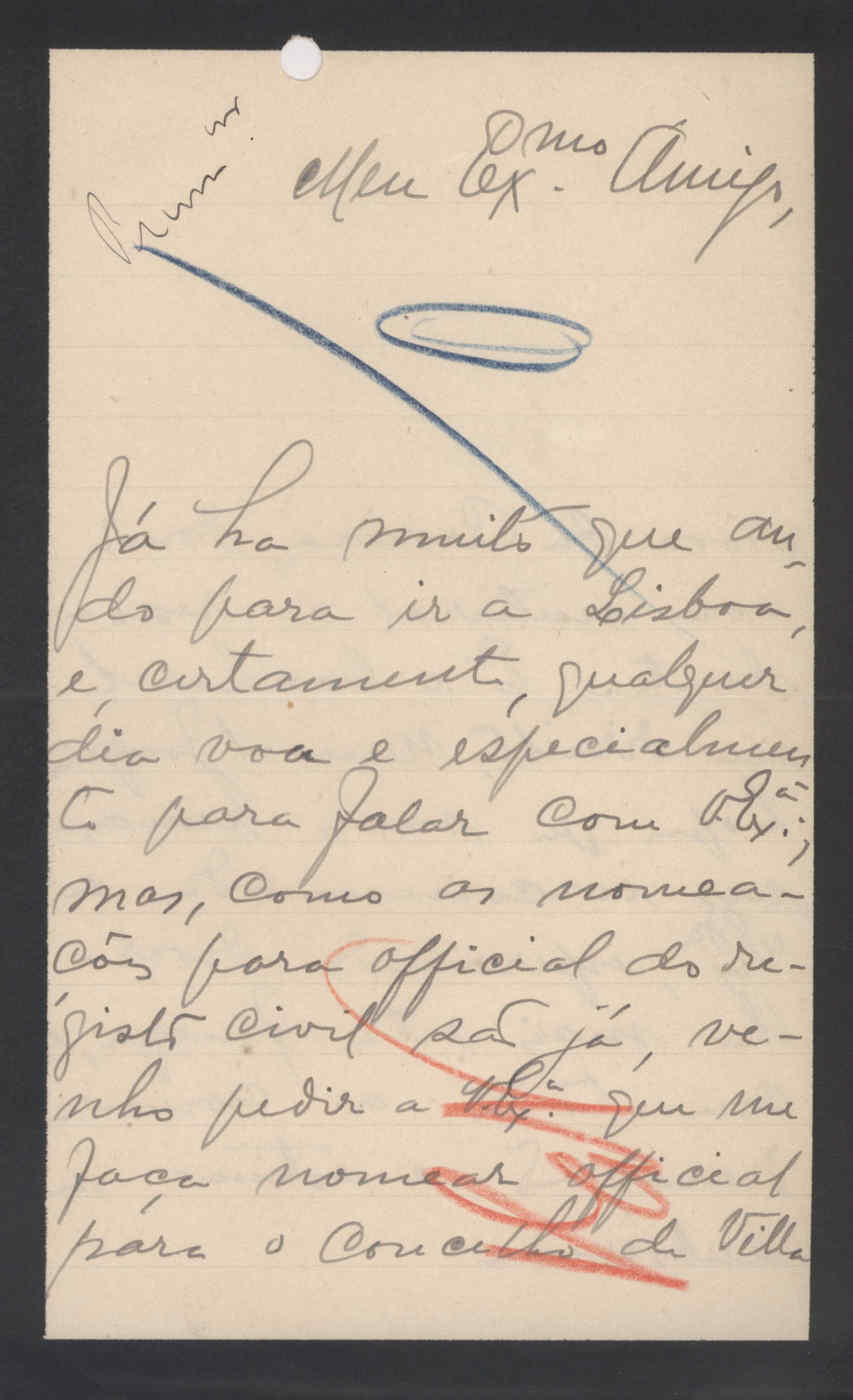 Meu Ex.mo Amigo,
Já ha muito que an-
do para ir a Lisboa,
e, certamente, qualquer
dia vou e especialmen
te para falar com V. Ex.ª;
mas, como as nomea-
ções para official do re-
gisto civil são já, ve-
nho pedir a V. Ex.ª que me
faça nomear official
pára o Concelho de Villa